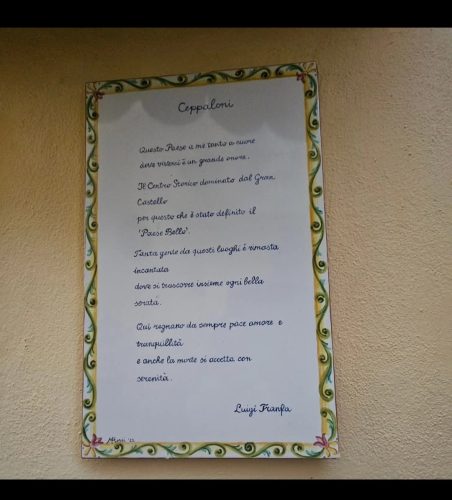 Ceppaloni
Questo Paese a me tanto a cuore
dove viverci è un grande onore.
Il Centro Storico dominato dal Gran
Castello
per questo che è stato definito il
'Paese Bello'.
Tanta gente da questi luoghi è rimasta
incantata
dove si trascorre insieme ogni bella
serata.
Qui regnano da sempre pace amore e
tranquillità
e anche la morte si accetta con
serenità.
Luigi Franfa